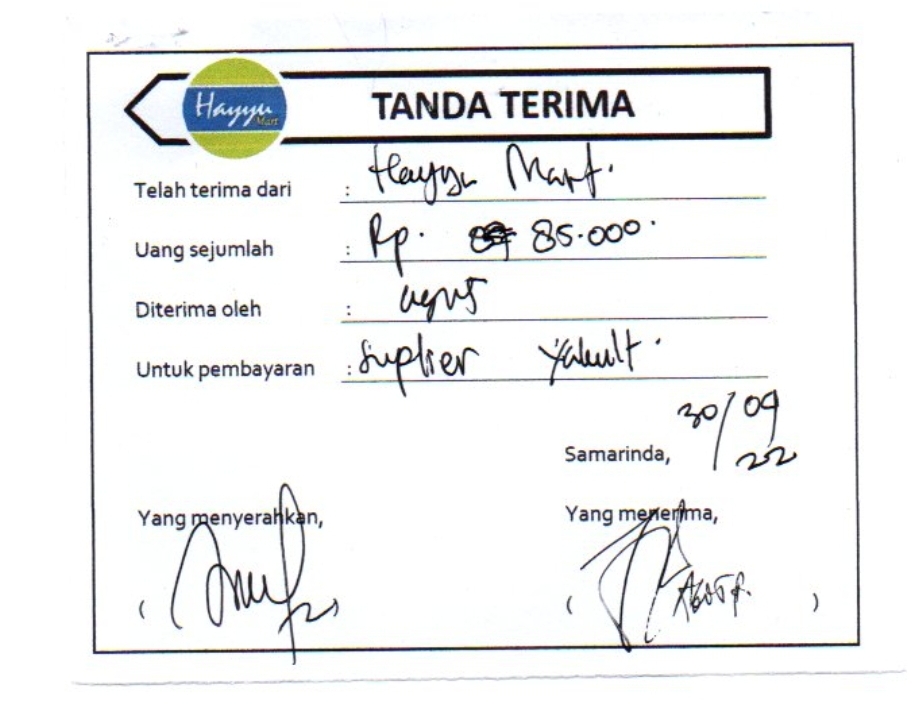 Hayyu
Mart
TANDA TERIMA
Telah terima dari : Hayyu Mart.
Uang sejumlah : Rp. 85.000.
Diterima oleh : agus
Untuk pembayaran : Suplier Yakult.
30/09
Samarinda, 22
Yang menyerahkan, Yang menerima,
( ) ( )